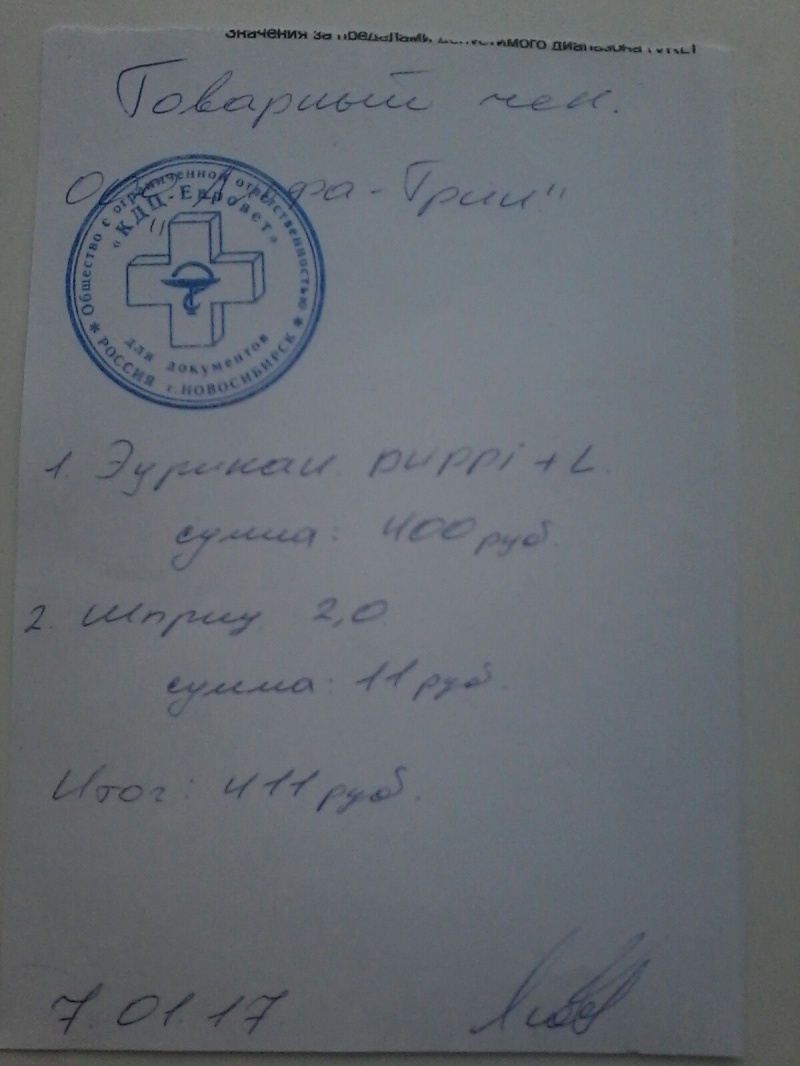 Значения за пределами допустимого диапазона
Товарный чек.
ООО "Альфа-Грин"
Общество с ограниченной ответственностью
«КДЦ-Евровет»
для документов
* РОССИЯ г.НОВОСИБИРСК *
1. Эурикан puppi + L.
сумма: 400 руб.
2. Шприц 2,0
сумма: 11 руб.
Итог: 411 руб.
7.01.17